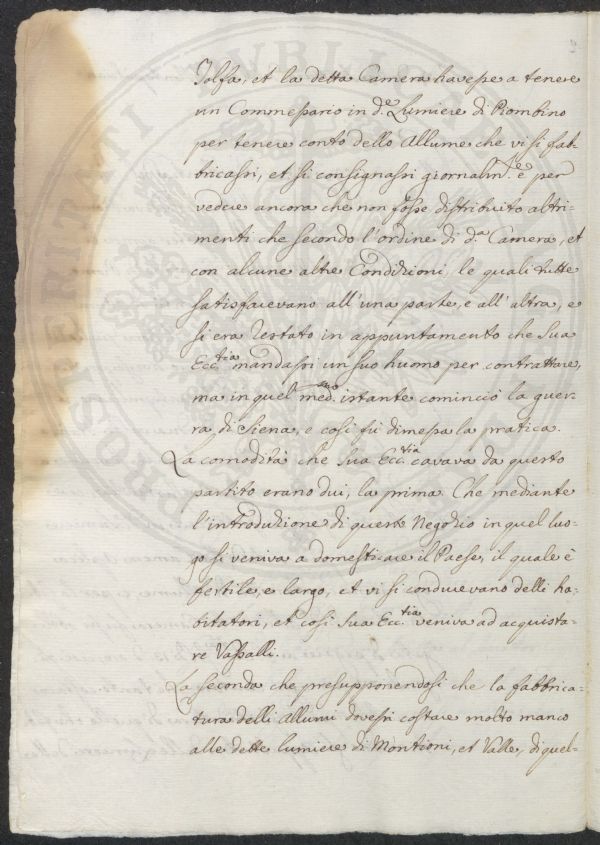 Tolfa, et la detta Camera havesse a tenere
un Commessario in d.e Lumiere di Piombino
per tenere conto dello Allume che vi si fab-
bricassi, et si consignassi giornalm.te e per
vedere ancora che non fosse distribuito altri-
menti che secondo l'ordine di d.a Camera, et
con alcune altre Condizioni, le quali tutte
satisfacevano all'una parte, e all'altra, e
si era restato in appuntamento che Sua
Ecc.tia mandassi un suo huomo per contrattare,
ma in quel med.mo istante cominciò la guer-
ra di Siena, e così fù dimessa la pratica.
La comodità che sua Ecc.tia cavava da questo
partito erano dui, la prima. Che mediante
l'introduzione di questo Negozio in quel luo-
go si veniva a domesticare il Paese, il quale è
fertile, e largo, et vi si conducevano delli ha-
bitatori, et così sua Ecc.tia veniva ad acquista-
re Vassalli.
La seconda che presupponendosi che la fabbrica-
tura delli Allumi dovessi costare molto manco
alle dette lumiere di Montioni, et Valle, di quel-